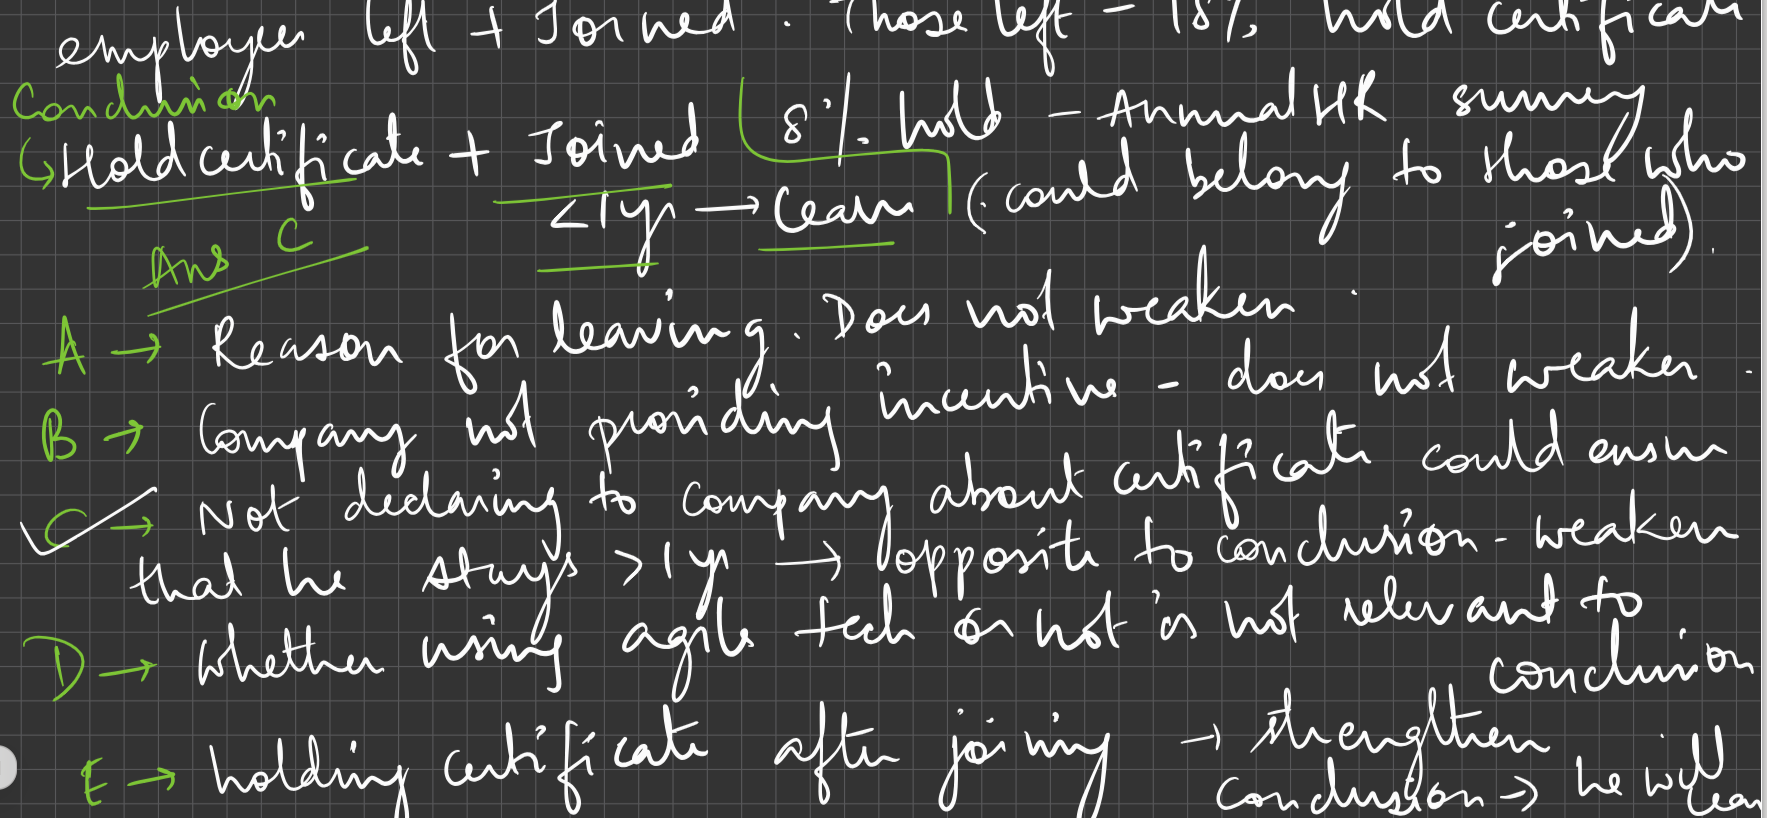 employee left + Joined. Those left - 18% hold certificate
Conclusion
Hold certificate + Joined 8% hold - Annual HR survey
<1yr → leave (could belong to those who
joined).
Ans C
A → Reason for leaving. Does not weaken.
B → Company not providing incentive - does not weaken.
C → Not declaring to company about certificate could ensure
that he stays >1yr → opposite to conclusion - weaken
D → whether using agile tech or not is not relevant to
conclusion
E → holding certificate after joining → strengthen
conclusion → he will